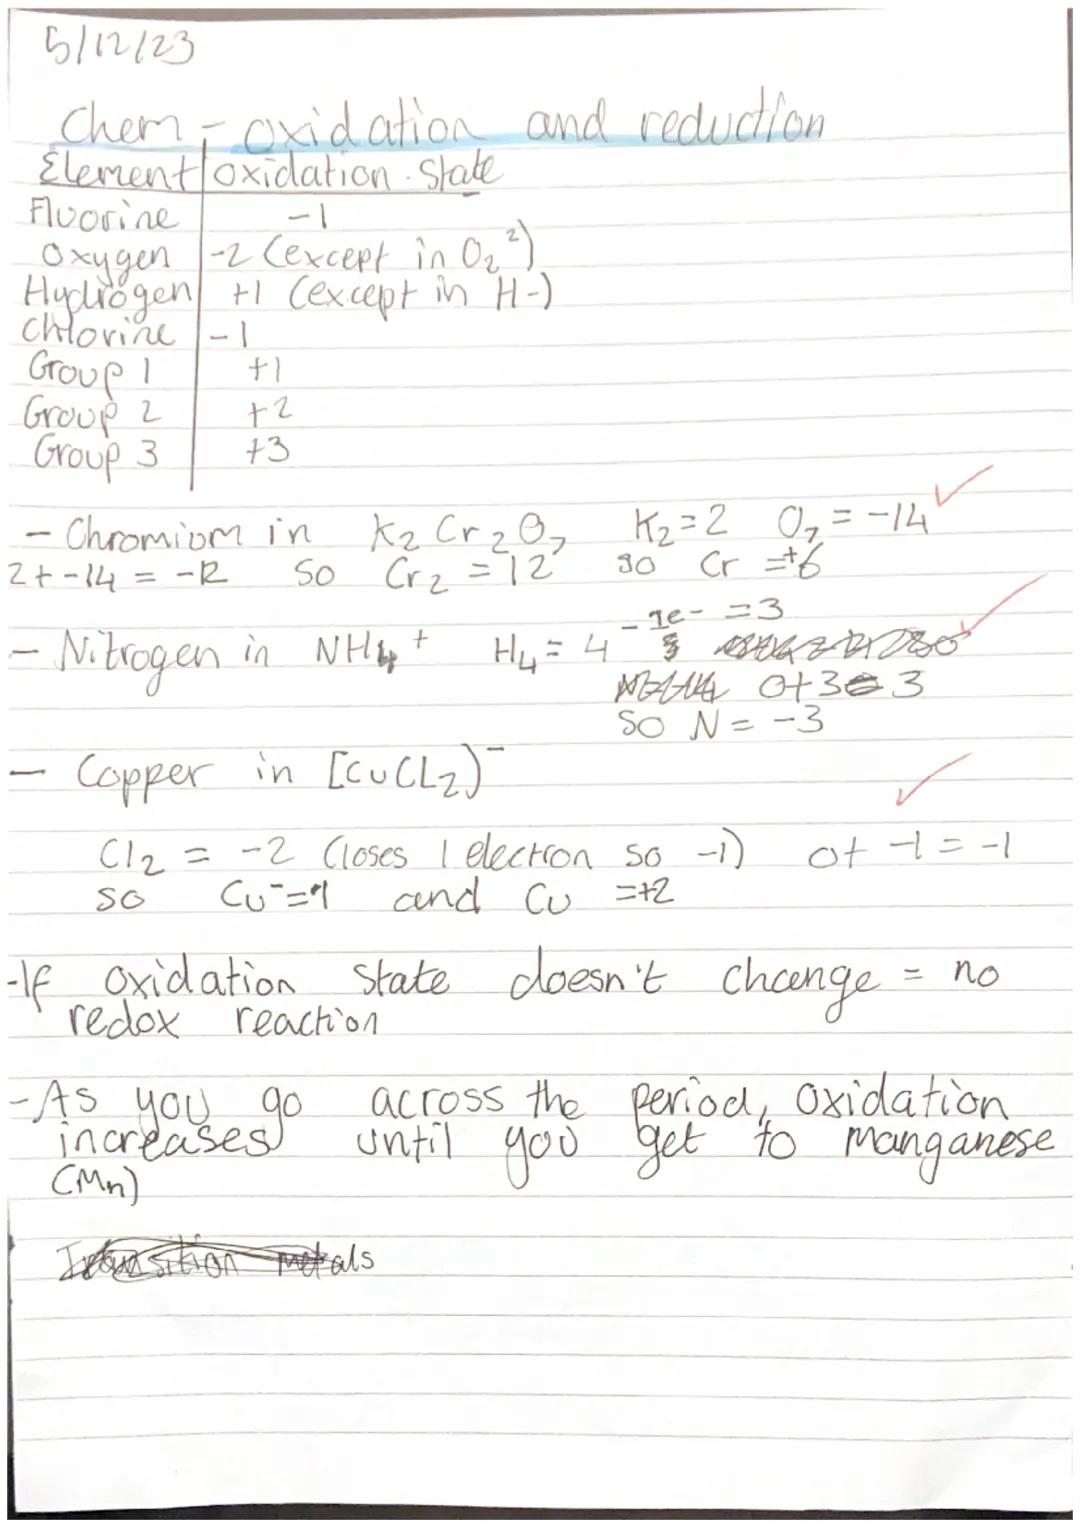 5/12/23
Chem - oxidation and reduction
Element oxidation state
Fluorine -1
Oxygen -2 (except in O₂²)
Hydrogen +1 (except in H-)
Chlorine -1
Group 1 +1
Group 2 +2
Group 3 +3
- Chromium in K₂Cr₂O₇ K₂=2 O₇=-14
2+-14 = -12 so Cr₂ = 12 so Cr =+6
- 1e- =3
- Nitrogen in NH₄+ H₄=4
0+3=3
so N = -3
- Copper in [CuCL₂)⁻
Cl₂ = -2 (loses 1 electron so -1) 0+ -1 = -1
so Cu⁻=1 and Cu =+2
-If oxidation state doesn't change = no
redox reaction
-As you go across the period, oxidation
increases until you get to manganese
(Mn)
Transition metals